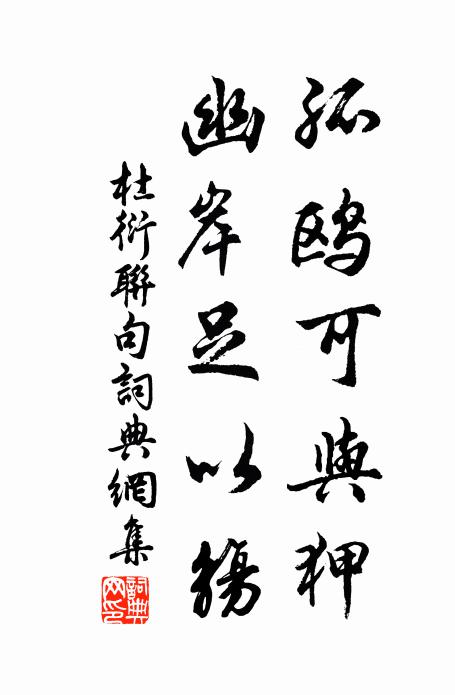 孤鷗可與狎
幽岸足以觴
杜衍聯句詞典網集
詞典網印